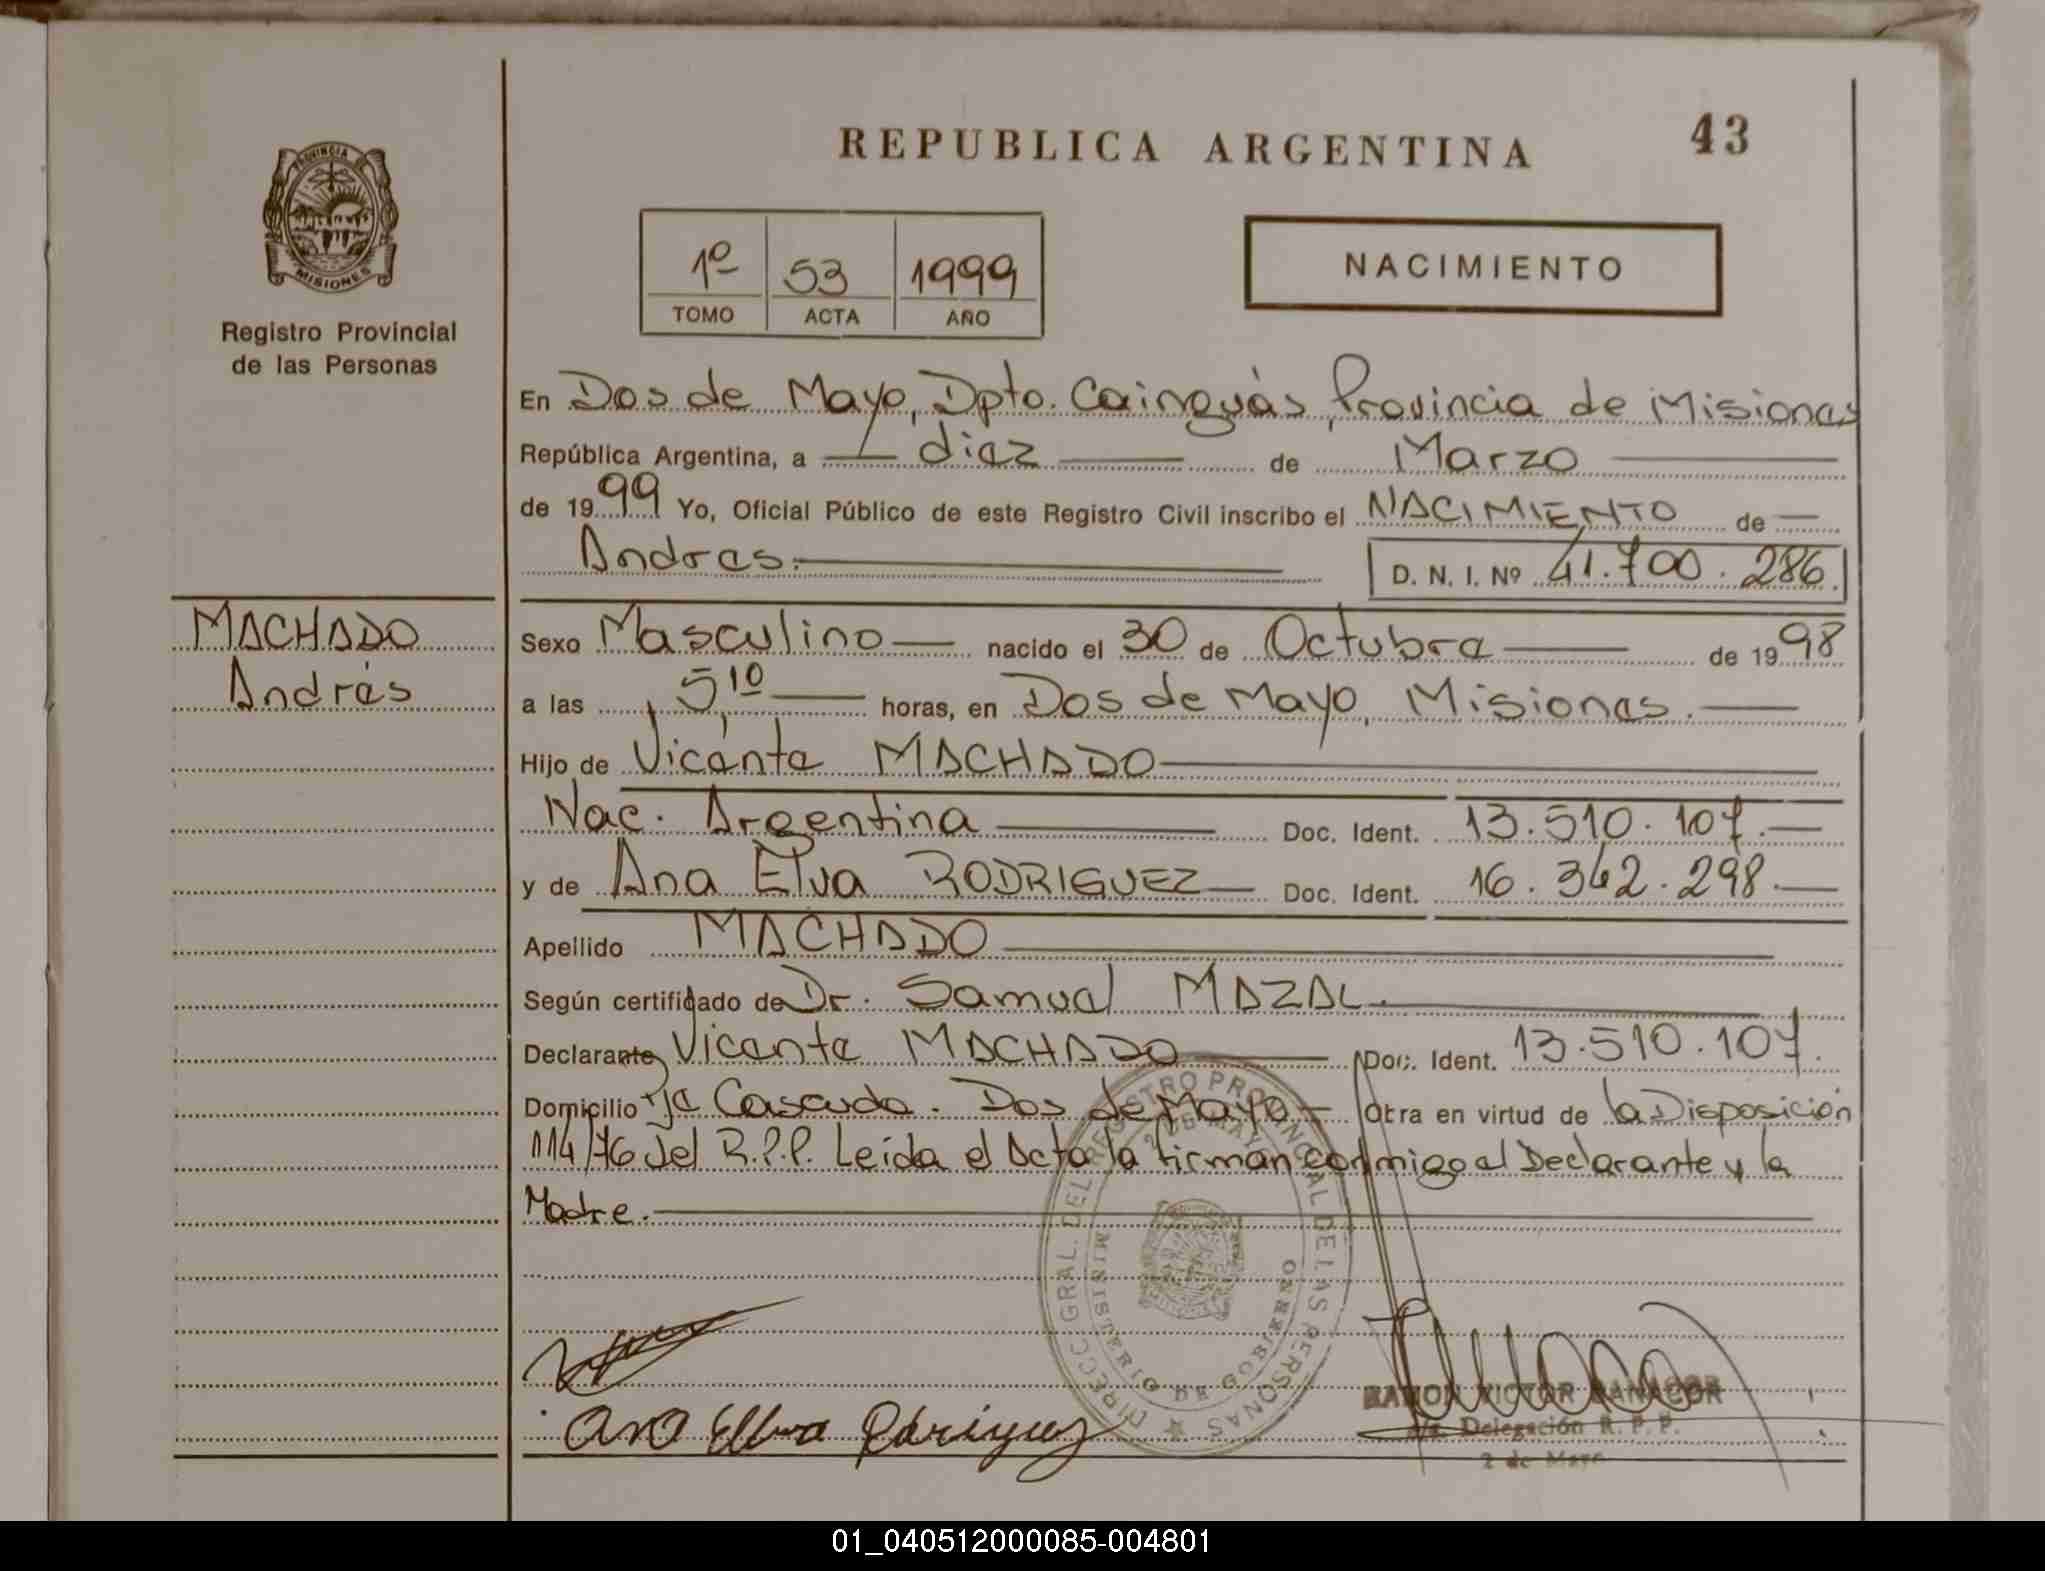 REPUBLICA ARGENTINA
43
PROVINCIA DE
MISIONES
Registro Provincial
de las Personas
1º 53 1999
TOMO ACTA AÑO
NACIMIENTO
En Dos de Mayo, Dpto. Cainguás, Provincia de Misiones
República Argentina, a diez de Marzo
de 1999 Yo, Oficial Público de este Registro Civil inscribo el NACIMIENTO de
Andres.
D. N. I. Nº 41.700.286.
MACHADO
Andrés
Sexo Masculino nacido el 30 de Octubre de 1998
a las 5,10 horas, en Dos de Mayo, Misiones.
Hijo de Vicente MACHADO
Nac. Argentina Doc. Ident. 13.510.107.
y de Ana Elva RODRIGUEZ Doc. Ident. 16.342.298.
Apellido MACHADO
Según certificado de Dr. Samuel MAZAL.
Declarante Vicente MACHADO Doc. Ident. 13.510.107.
Domicilio Cascada. Dos de Mayo Otra en virtud de la Disposición
114/76 del R.P.P. Leída el Acta la firman conmigo el Declarante y la
Madre.
DIRECC GRAL. DEL REGISTRO PROVINCIAL DE LAS PERSONAS
2 DE MAYO
MINISTERIO DE GOBIERNO
Ana Elva Rodriguez
RAMON VICTOR
Delegación R. P. P.
2 de Mayo
01_040512000085-004801